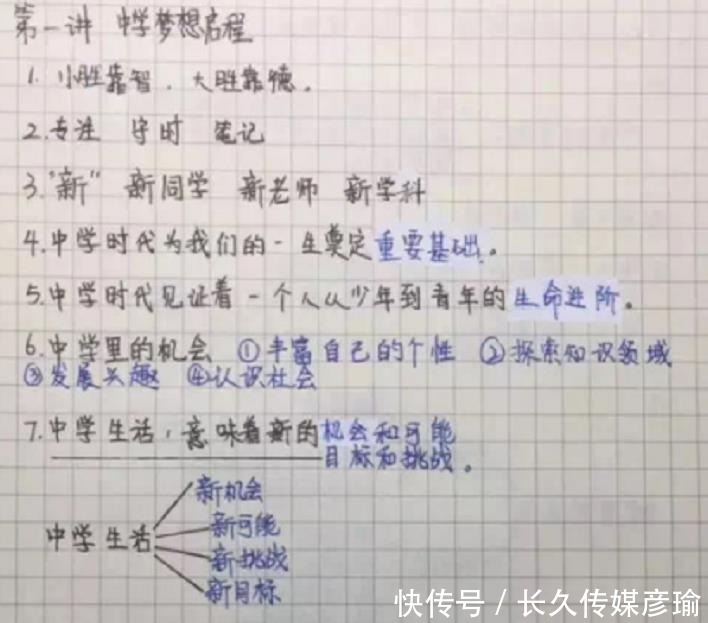 第一讲 中学梦想启程
1. 小胜靠智，大胜靠德。
2. 专注 守时 笔记
3. "新" 新同学 新老师 新学科
4. 中学时代为我们的一生奠定重要基础。
5. 中学时代见证着一个人从少年到青年的生命进阶。
6. 中学里的机会 ①丰富自己的个性 ②探索知识领域
③发展兴趣 ④认识社会
7. 中学生活，意味着新的机会和可能
目标和挑战。
新机会
新可能
中学生活
新挑战
新目标
快传号 / 长久传媒彦瑜